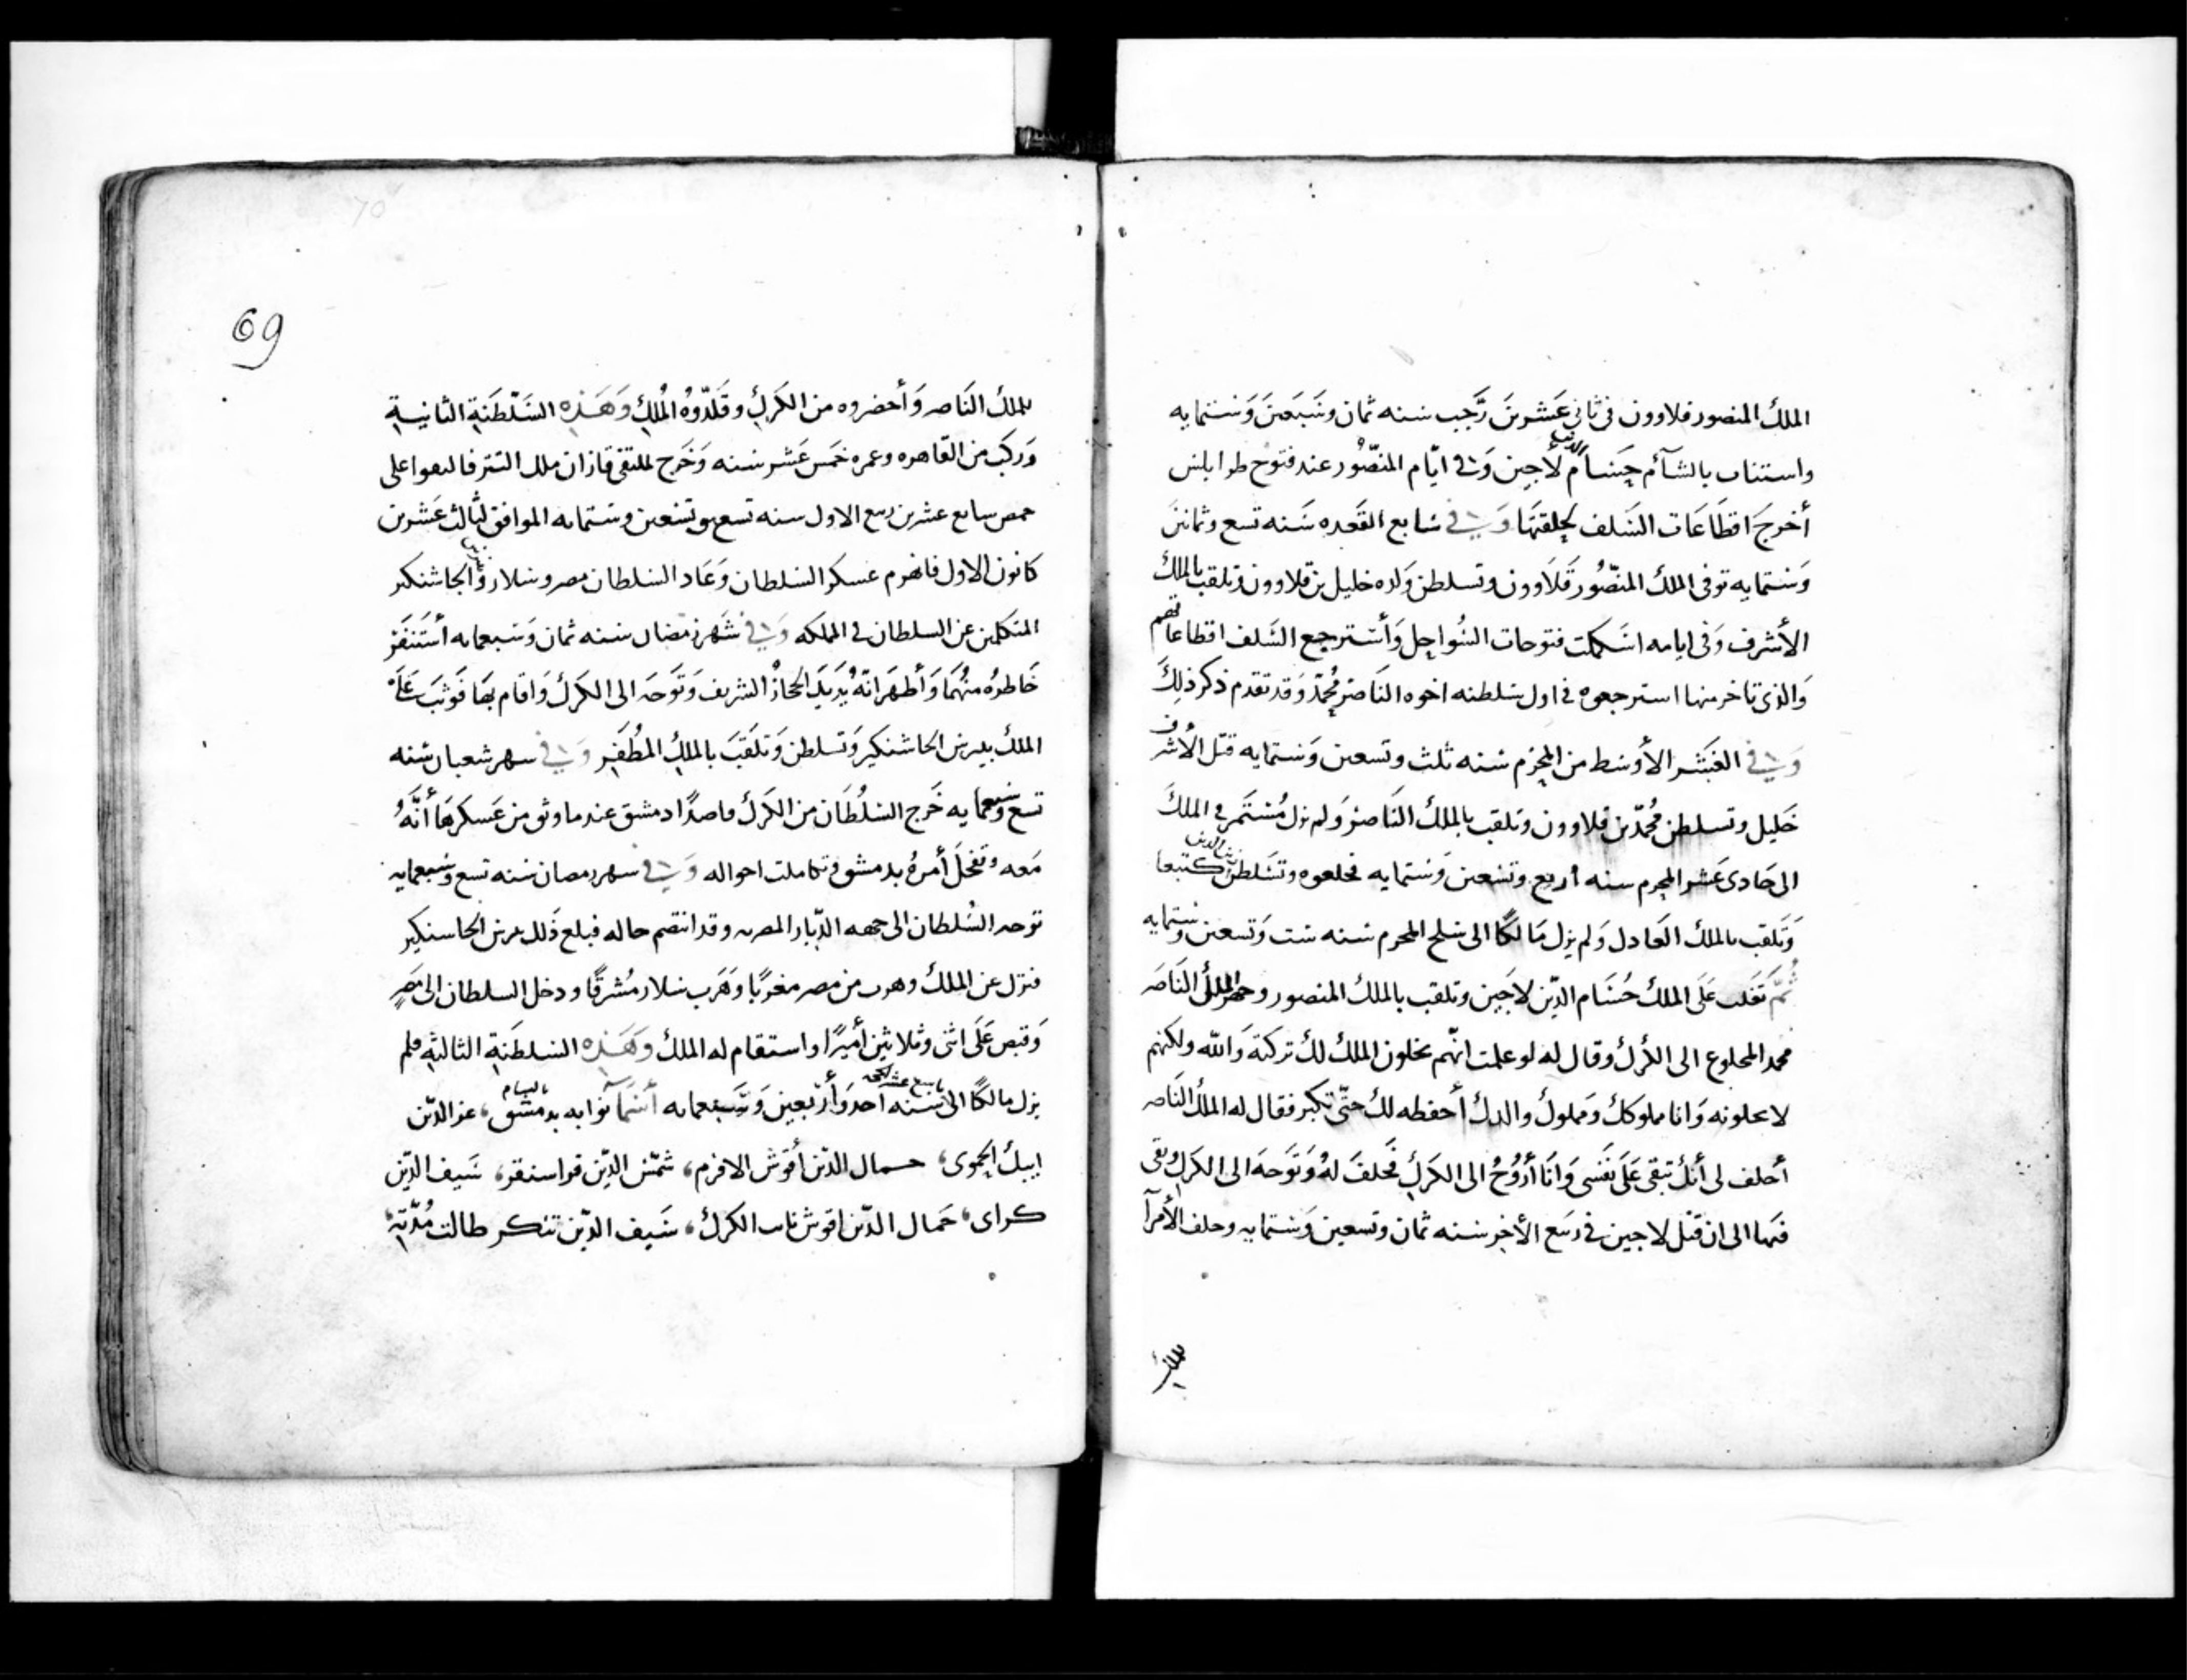 الملك المنصور قلاوون في ثاني عشرين رجب سنه ثمان وسبعين وستمايه
واستناب بالشآم حسام الدين لاجين وفي ايّام المنصُور عند فتوح طرابلس
أخرجَ اقطاعَات السَلف لحلقتها وَفي سَابع القعده سَنه تسع وثمانين
وَستمايه توفى الملك المنصُور قَلاوون وتسلطن وَلده خليل بن قلاوون وتلقب بالملك
الأشرف وَفى ايامه استكملت فتوحات السواحل وَأسترجع السَلف اقطاعاتهم
وَالذي تاخر منها استرجعوه في اول سلطنه اخوه الناصر محمّد وَقد تقدم ذكر ذلِكَ
وَفي العَشر الأوسَط من المحرم سنه ثلث وتسعين وَستمايه قتل الأشرف
خَليل وتسلطن محمّد بن قلاوون وتلقب بالملك النَاصر وَلم يزل مُستَمر في الملك
الى حَادى عَشر المحرم سنه أربع وتسعين وَستمايه فخلعوه وتسَلطن زين الدين كتبغا
وَتلقب بالملك العَادل وَلم يزل مَالكًا الى سَلخ المحرم سنه ست وَتسعين وستمايه
ثُمّ تَغلب عَلَى الملك حُسَام الدِّين لاجَين وتلقب بالملك المنصور وحضر الملك النَاصَر
محمد المخلوع الى الكرك وقال له لو علمت انّهم يخلون الملك لك تركته وَالله ولكنهم
لا يخلونه وَانا مملوكك وَمملوك والدك أحفظه لك حتّى تكبر فقال له الملك النَاصر
أحلف لى أنك تبقى عَلَى نَفسى وَانَا أرُوُحُ الى الكرَك فحَلفَ لهُ وَتوَجهَ الى الكرَك وَبقى
فيها الى ان قتل لاجين في ربيع الأخر سنه ثمان وتسعين وَستمايه وحلف الأمرآ
للملك
69
للملك النَاصر وَأحضروه من الكَرَك وقَلّدُوهُ المُلك وَهَذِه السَلطَنَةِ الثانيةِ
وَركبَ من القَاهره وعمره خمَس عَشر سنه وَخَرج لملتقى قازان ملك التتر فالتقوا على
حمص سابع عشرين ربيع الاول سنه تسع وتسعين وستمايه الموافق لثالث عَشرين
كانون الاول فانهزم عسكر السَلطان وَعَاد السَلطان مصر وسَلار وبيبرس الجاشنكير
المتكلمين عن السلطان في المملكه وَفي شَهر رَمضان سنه ثمان وَسبعمايه أستَنفَر
خَاطرُه منهُمَا وَأظهَر انهُ يُريَد الحجازُ الشريف وَتَوجَه الى الكَركَ وَاقام بهَا فَوثبَ عَلَى
الملك بيبرس الجاشنكير وَتسلطن وَتلقبَ بالملِكِ المظُفَر وَفي سهر شعبان سنه
تسع وسبعمايه خَرج السَلُطَان من الكَرَك قاصدًا دمشق عندما وثق من عَسكرهَا أنَّهُ
مَعه وتفخلَ أمرهُ بدمشق وتكاملت احواله وَفي سهر رمضان سنه تسع وَسبعمايه
توجه السُلطان الى جهه الدّيار المصريه وقد انتصم حاله فبلغ ذَلك بيبرس الجاسنكير
فنزل عن الملك وهرب من مصر مغربًا وَهَرَب سلار مُشرقًا ودخل السلطان الى مَصر
وَقبض عَلَى اثنى وثلاثين أميرًا واستقام له الملك وَهَذِه السَلطَنَةِ الثالثةِ فلم
يزل مالكًا الى تاسع عشر الحجه سَنه احد وَأربَعين وَسَبعمايه أسَمآ نوابه بدمشق بالشام، عز الدّين
ايبك الحموى، جمال الدّين أقوش الافرم، شمَس الدِّين قراسنقر، سَيف الدِّين
كراى، جَمال الدّين اقوش نايب الكرك، سَيف الدّين تنكز طالت مُدّته،